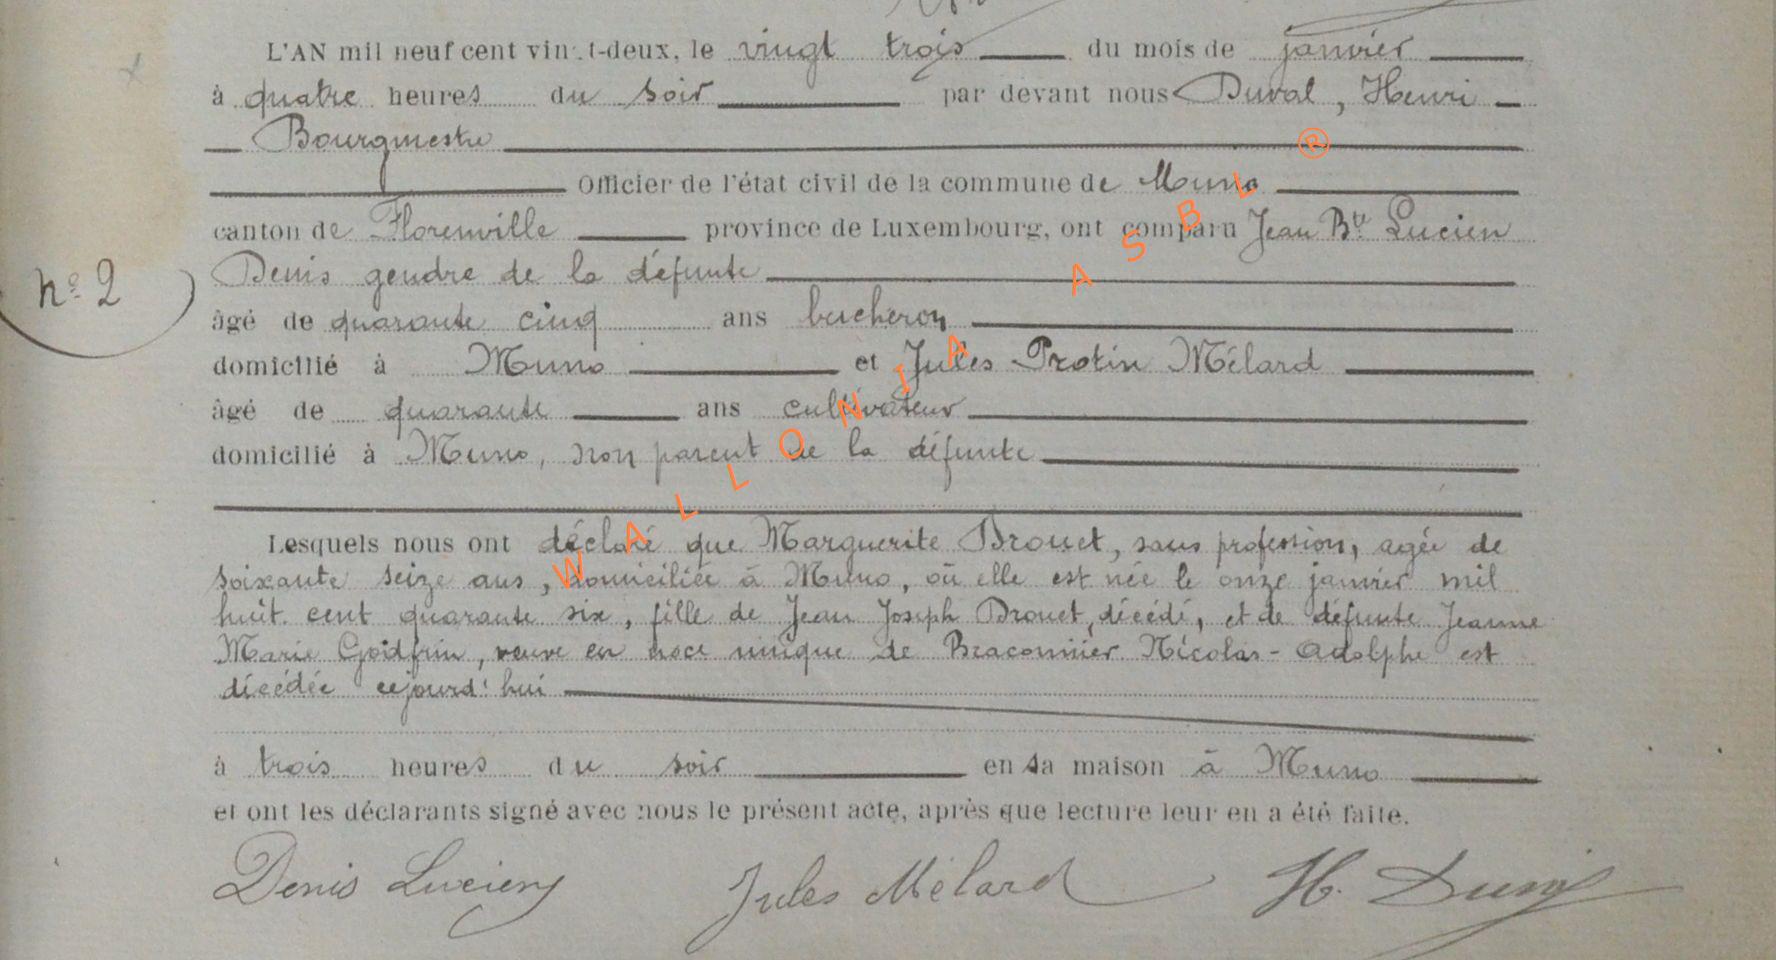 L'AN mil neuf cent vingt-deux, le vingt trois du mois de janvier
à quatre heures du soir par devant nous Duval, Henri
Bourgmestre
Officier de l'état civil de la commune de Muno
canton de Florenville province de Luxembourg, ont comparu Jean Bte Lucien
Denis gendre de la défunte
n° 2
âgé de quarante cinq ans bucheron
domicilié à Muno et Jules Protin Mélard
âgé de quarante ans cultivateur
domicilié à Muno, non parent de la défunte
Lesquels nous ont déclaré que Marguerite Drouet, sans profession, agée de
soixante seize ans, domiciliée à Muno, où elle est née le onze janvier mil
huit cent quarante six, fille de Jean Joseph Drouet, décédé, et de défunte Jeanne
Marie Goidfrin, veuve en noce unique de Braconnier Nicolas-Adolphe est
décédée cejourd'hui
à trois heures du soir en sa maison à Muno
et ont les déclarants signé avec nous le présent acte, après que lecture leur en a été faite.
Denis Lucien Jules Mélard H. Duval
WALLONIA ASBL ®